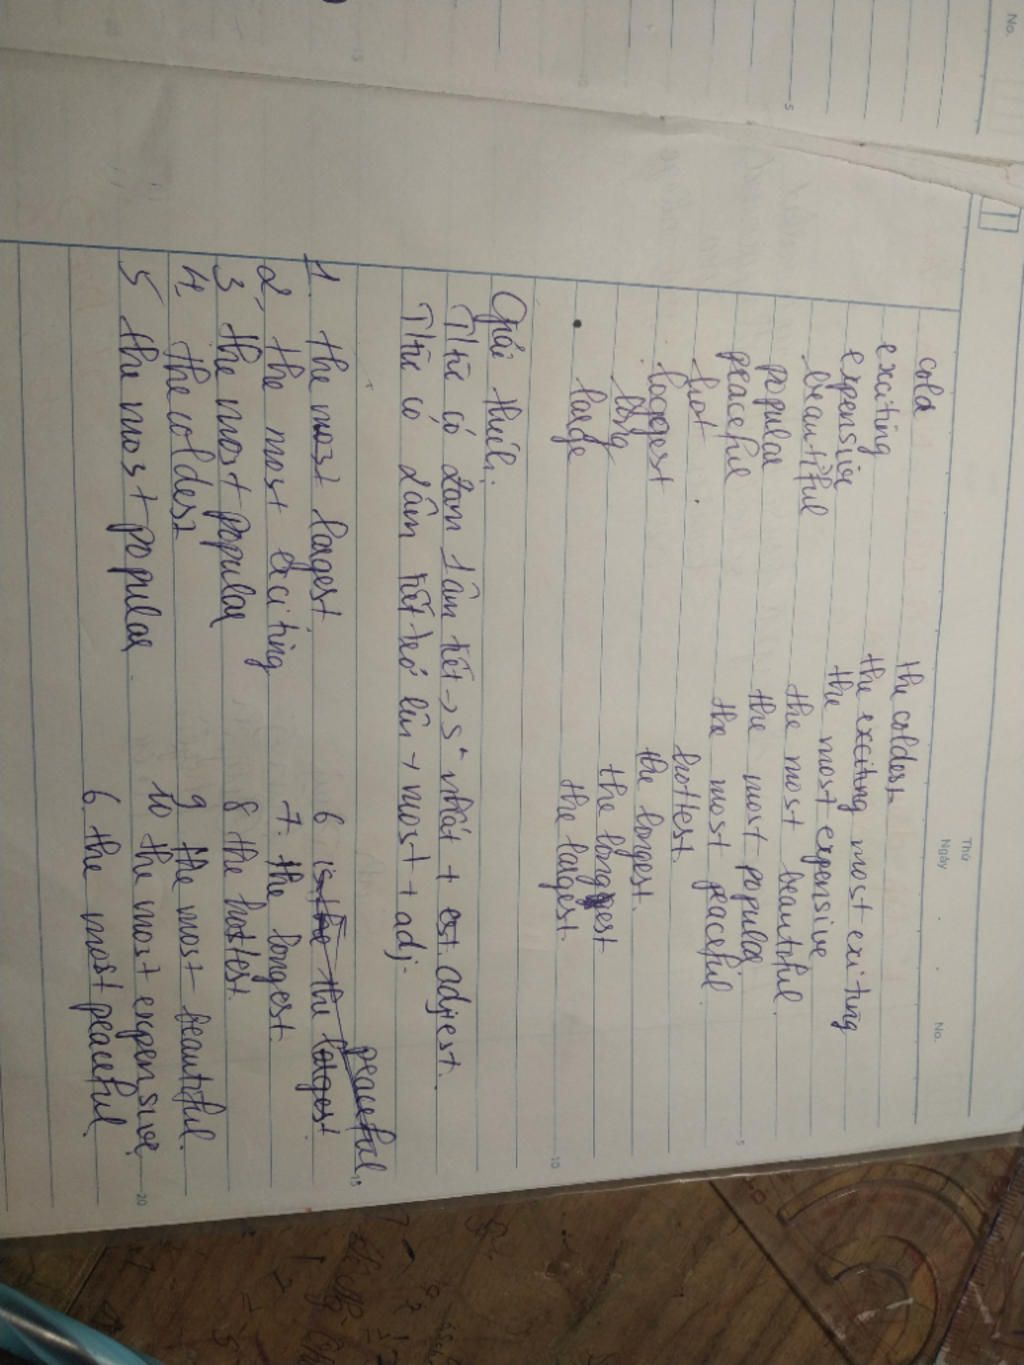 No.
5
Thứ
Ngày
No.
cold the coldest
exciting the exciting most exiting
expensive the most expensive
beautiful the most beautiful
popular the most popular
peaceful the most peaceful
hot hottest
the longest
long the longest
large the largest
5
10
Giải thích:
Từ có 1 âm tiết → s² nhất + est. adjest.
Từ có 2 âm tiết trở lên → most + adj.
1. the most largest
2, the most exciting
3 the most popular
4, the coldest
5 the most popular
peaceful
6 is the the largest
7. the longest.
8 the hottest.
9 the most beautiful.
10 the most expensive.
6. the most peaceful.
15
20